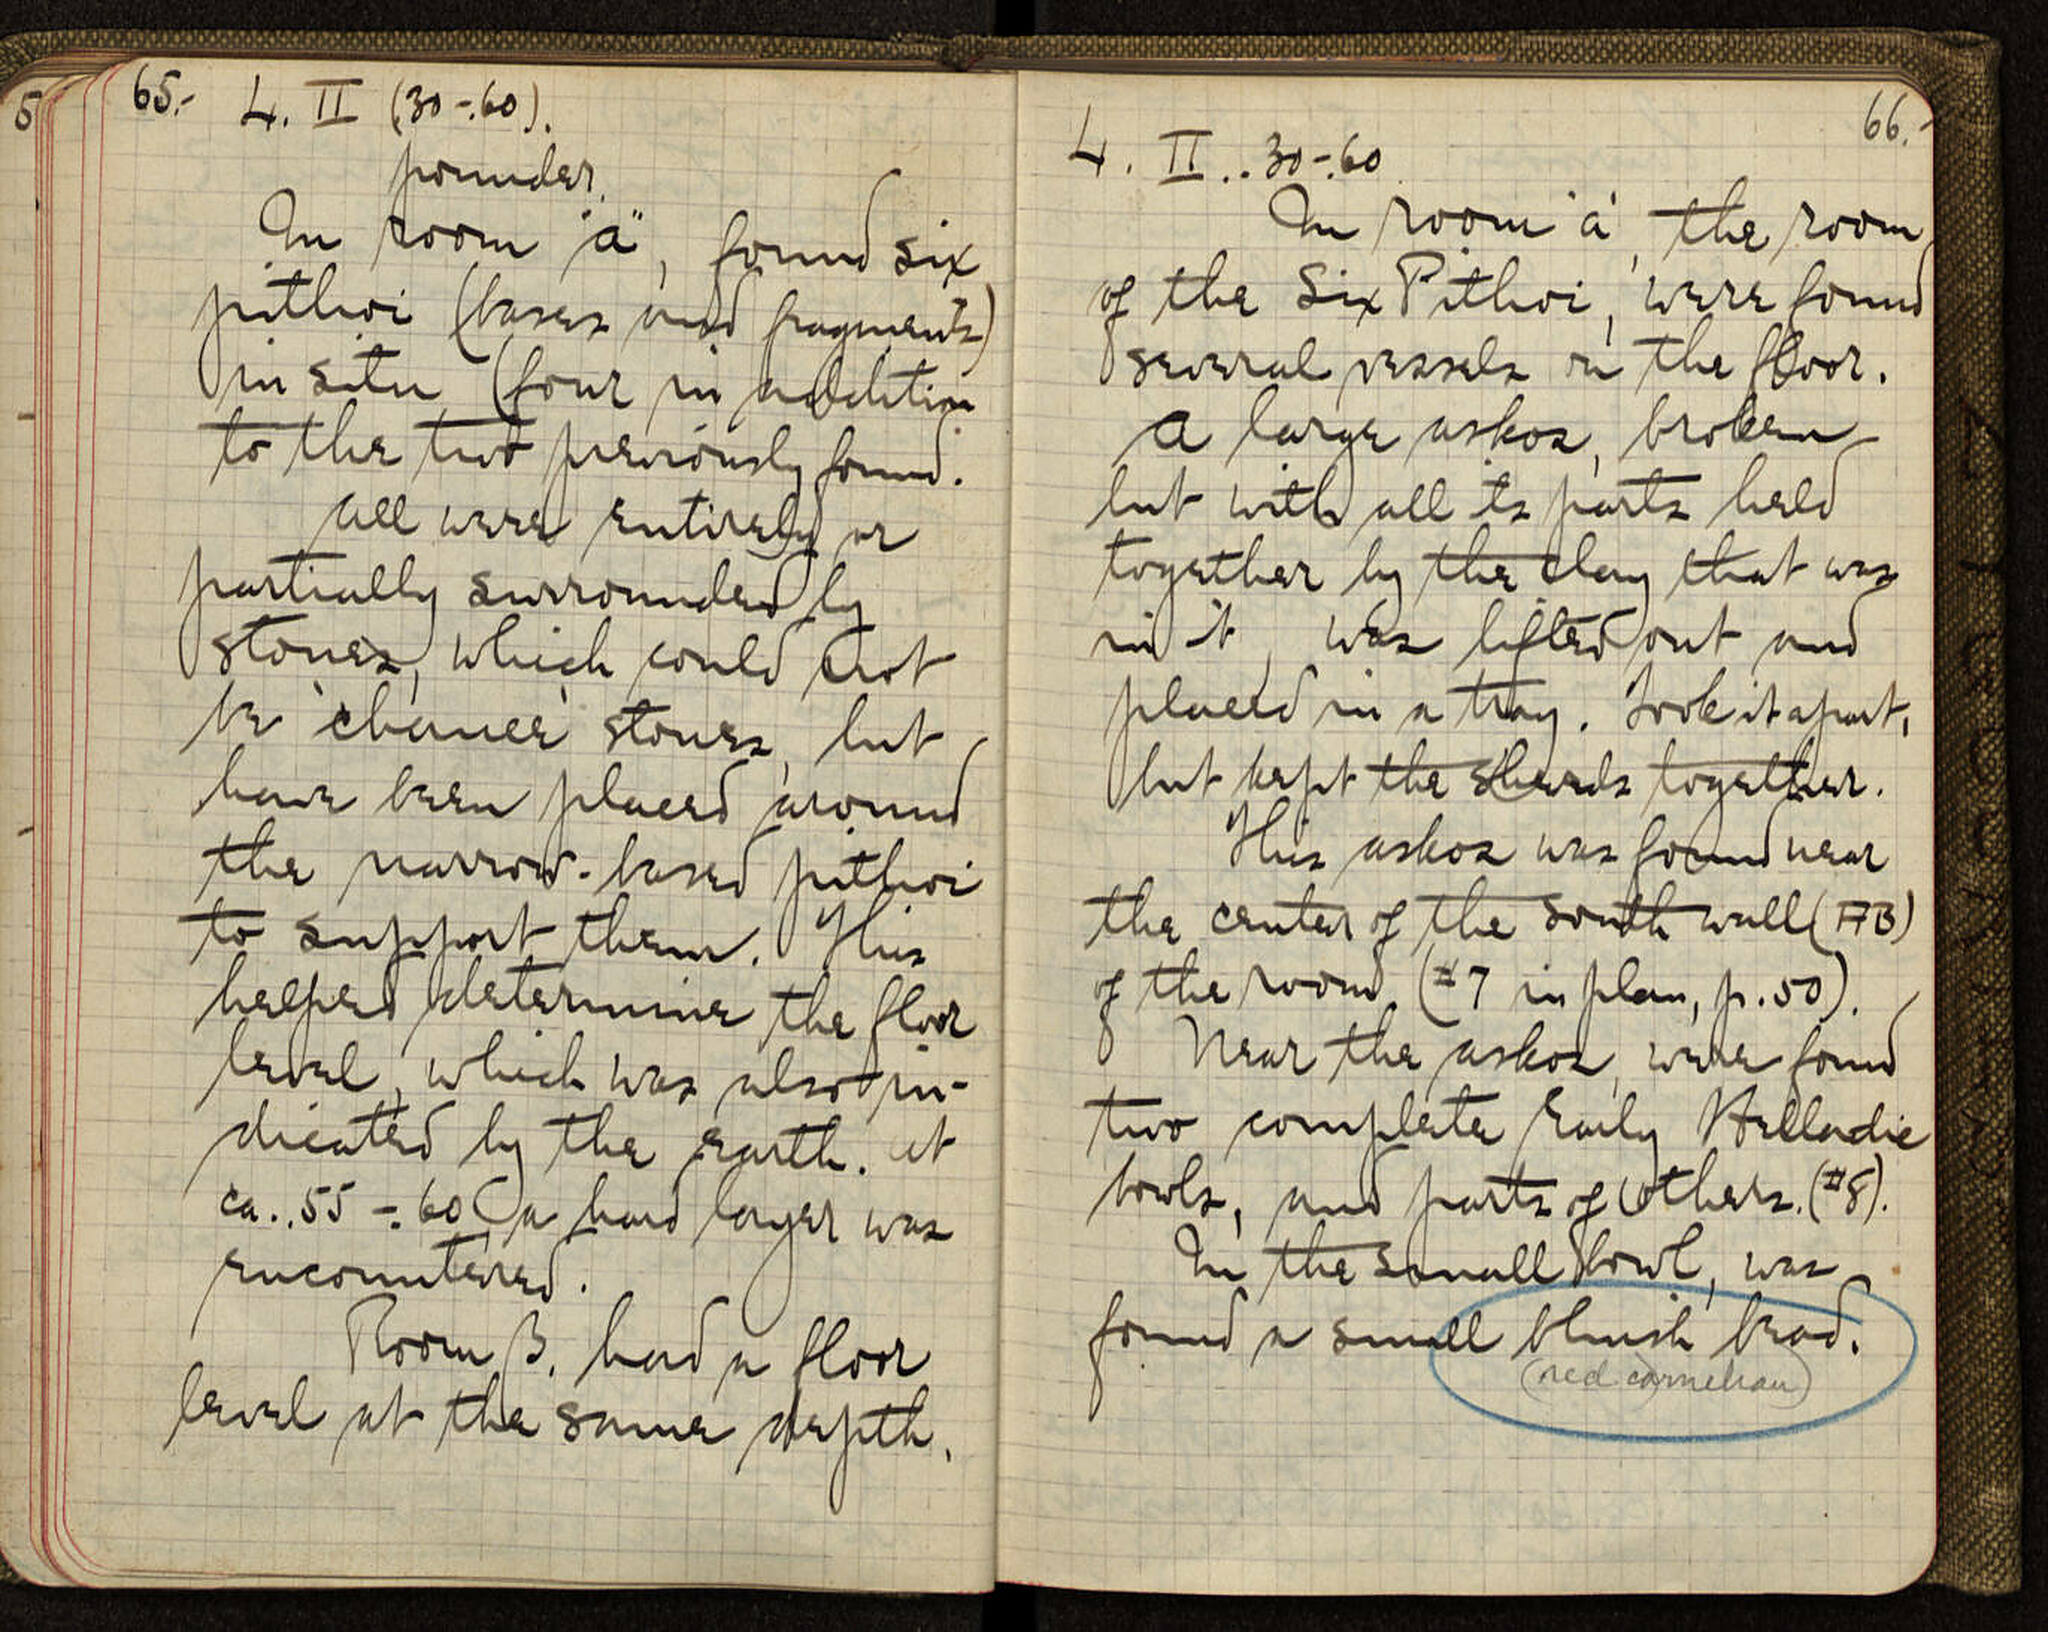 5
65.-
4. II (.30-.60).
pounder.
In room "a", found six
pithoi (bases and fragments)
in situ (four in addition
to the two previously found.
All were entirely or
partially surrounded by
stones, which could not
be 'chance' stones, but
have been placed around
the narrow-based pithoi
to support them. This
helped determine the floor
level, which was also in-
dicated by the earth. At
ca. .55 -.60, a hard layer was
encountered.
Room B. had a floor
level at the same depth.
66.-
4. II. .30-.60
In room 'a', the room
of the Six Pithoi, were found
several vessels on the floor.
A large askos, broken
but with all its parts held
together by the clay that was
in it, was lifted out and
placed in a tray. Took it apart,
but kept the sherds together.
This askos was found near
the center of the south wall (AB)
of the room. (#7 in plan, p. 50).
Near the askos, were found
two complete Early Helladic
bowls, and parts of others. (#8).
In the small bowl, was
found a small bluish bead.
(red carnelian)